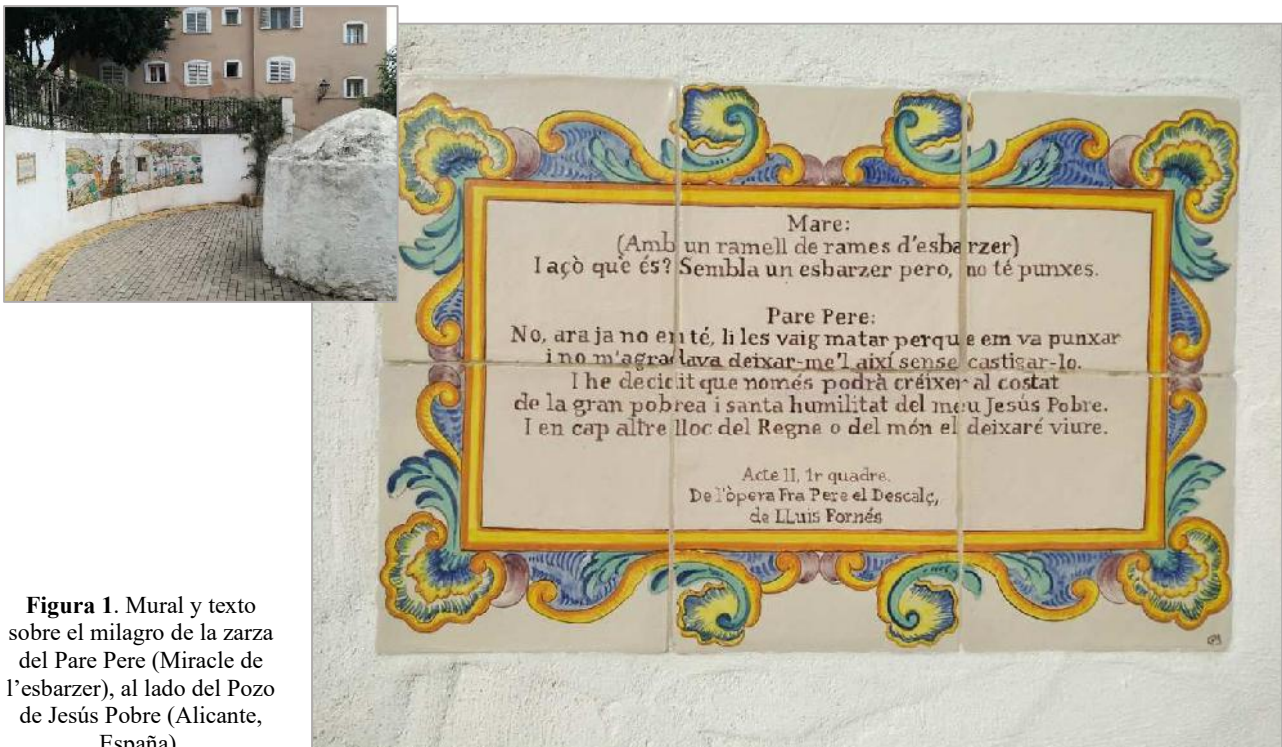 Mare:
(Amb un ramell de rames d'esbarzer)
I açò què és? Sembla un esbarzer pero, no té punxes.
Pare Pere:
No, ara ja no en té, li les vaig matar perquè em va punxar
i no m'agradava deixar-me'l així sense castigar-lo.
I he decidit que només podrà créixer al costat
de la gran pobrea i santa humilitat del meu Jesús Pobre.
I en cap altre lloc del Regne o del món el deixaré viure.
Acte II, 1r quadre.
De l'òpera Fra Pere el Descalç,
de LLuis Fornés
Figura 1. Mural y texto
sobre el milagro de la zarza
del Pare Pere (Miracle de
l'esbarzer), al lado del Pozo
de Jesús Pobre (Alicante,
España)